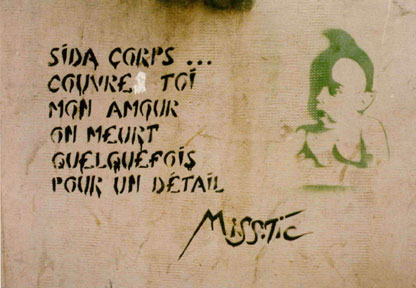 SIDA CORPS ...
COUVRE TOI
MON AMOUR
ON MEURT
QUELQUEFOIS
POUR UN DÉTAIL
MISS.TIC